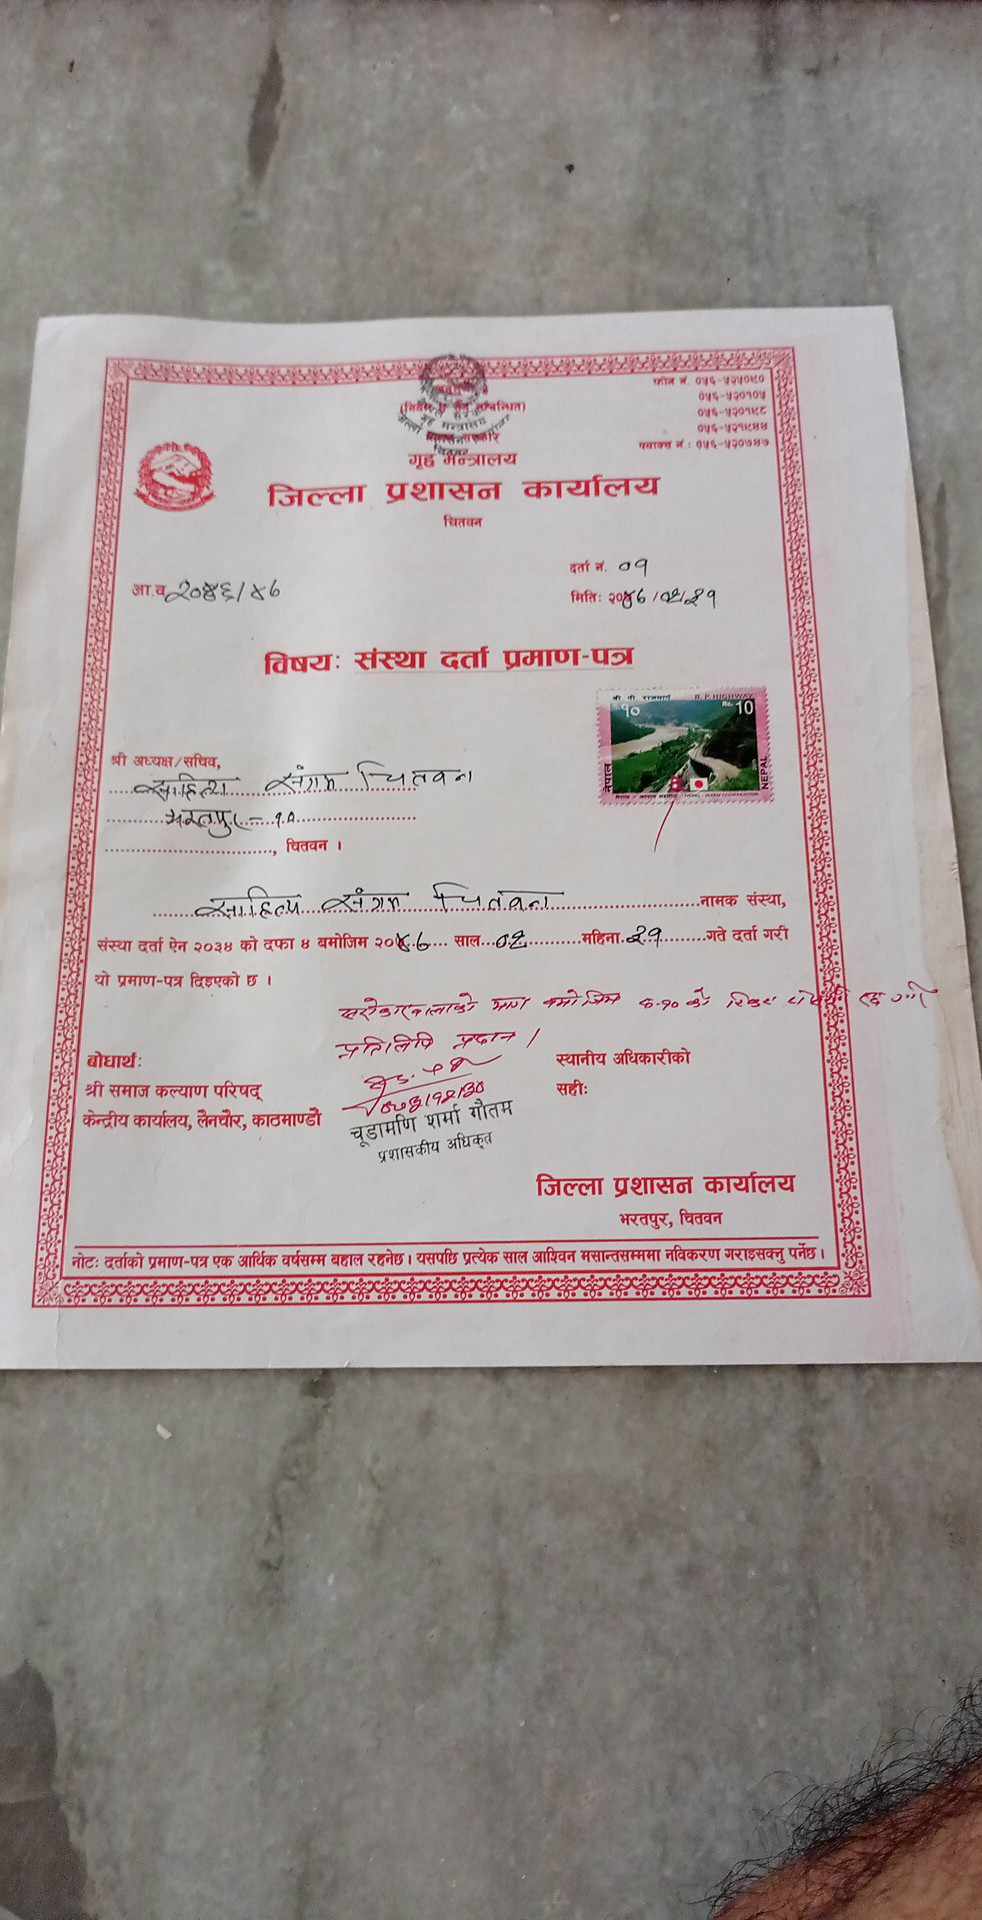 फोन नं. ०५६-५२५०८०
०५६-५२०१०५
०५६-५२०१९८
०५६-५२१९४४
फ्याक्स नं : ०५६-५२०७४७
गृह मन्त्रालय
जिल्ला प्रशासन कार्यालय
चितवन
दर्ता नं. ०१
आ.व. २०४६/४७
मितिः २०४७/०२/२१
विषयः संस्था दर्ता प्रमाण-पत्र
श्री पी राजमार्ग B. P. HIGHWAY
१० Rs. 10
नेपाल NEPAL
श्री अध्यक्ष/सचिव,
साहित्य संगम चितवन
भरतपुर - १०
, चितवन ।
साहित्य संगम चितवन नामक संस्था,
संस्था दर्ता ऐन २०३४ को दफा ४ बमोजिम २०४७ साल ०२ महिना २१ गते दर्ता गरी
यो प्रमाण-पत्र दिइएको छ ।
सरोकारवालाको माग बमोजिम रु.१० को टिकट
प्रतिलिपि प्रदान ।
बोधार्थः
स्थानीय अधिकारीको
श्री समाज कल्याण परिषद्
सहीः
केन्द्रीय कार्यालय, लैनचौर, काठमाण्डौ
चूडामणि शर्मा गौतम
प्रशासकीय अधिकृत
जिल्ला प्रशासन कार्यालय
भरतपुर, चितवन
नोटः दर्ताको प्रमाण-पत्र एक आर्थिक वर्षसम्म बहाल रहनेछ । यसपछि प्रत्येक साल आश्विन मसान्तसम्ममा नविकरण गराइसक्नु पर्नेछ ।